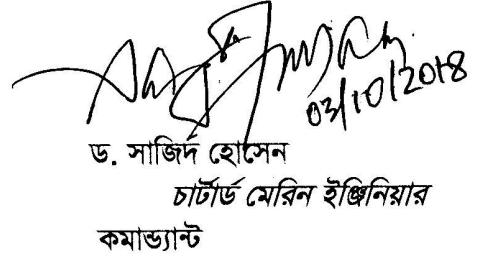 03/10/2018
ড. সাজিদ হোসেন
চার্টার্ড মেরিন ইঞ্জিনিয়ার
কমান্ড্যান্ট